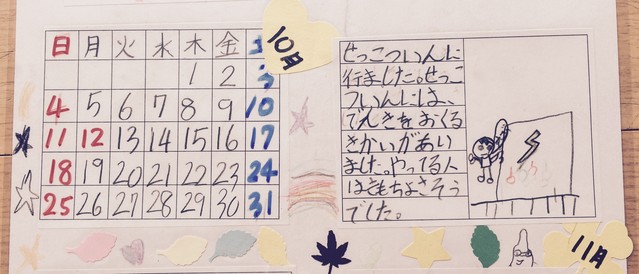 10月
日 月 火 水 木 金 土
1 2 3
4 5 6 7 8 9 10
11 12 13 14 15 16 17
18 19 20 21 22 23 24
25 26 27 28 29 30 31
せっこついんに
行ました。せっこ
ついんには、
でんきをおくる
きかいがあり
ました。やってる人
はきもちよさそう
でした。
11月